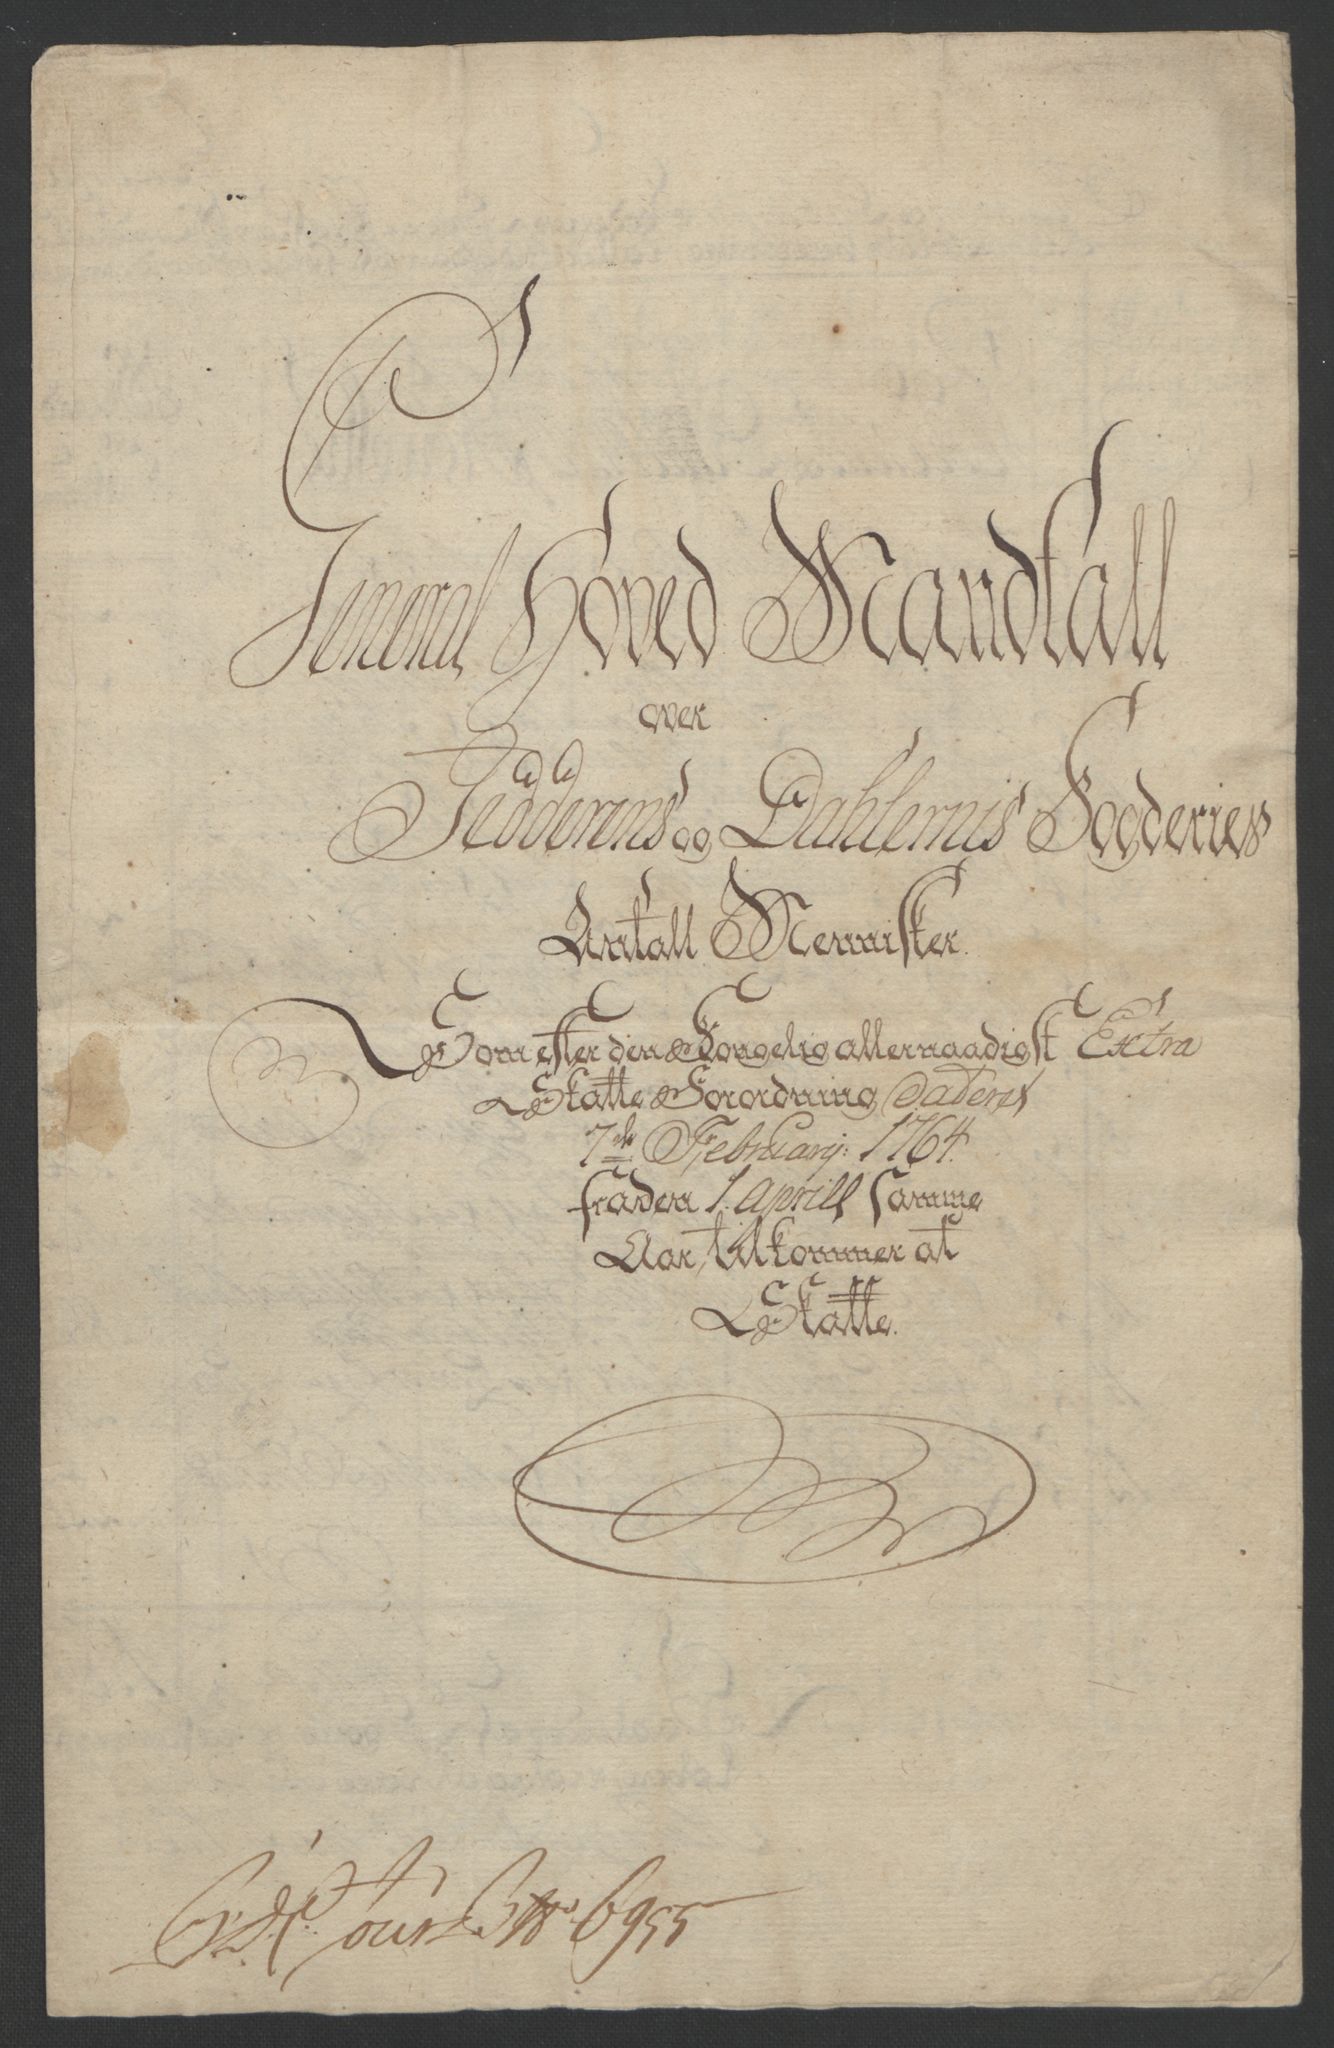 General Hoved Mandtall
over
Jedderens og Dahlernis Fogderies
Antall Mennisker.
Som efter den Kongelig allernaadigst Extra
Skatte Forordning Dateret
7de February: 1764.
fra den 1. Aprill samme
Aar, tilkommer at
Skatte.
No 6955